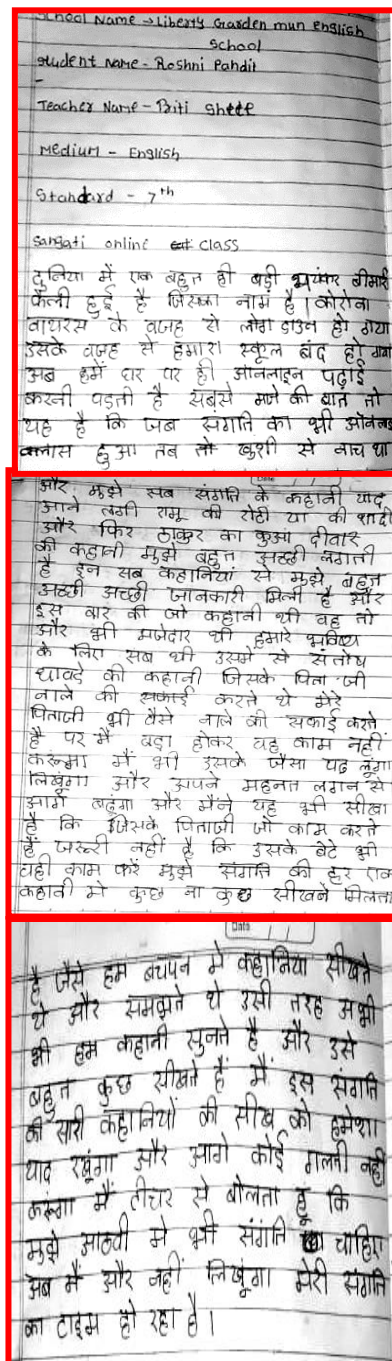 School Name → Liberty Garden mun English
School
Student Name - Roshni Pandit
-
Teacher Name - Priti Shete
Medium - English
Standard - 7th
Sangati online class
दुनिया में एक बहुत ही बड़ी भयंकर बीमारी
फैली हुई है जिसका नाम है। कोरोना
वायरस के वजह से लोग डाउन हो गया
उसके वजह से हमारा स्कूल बंद हो गया
अब हमें घर पर ही ऑनलाइन पढ़ाई
करनी पड़ती है सबसे मजे की बात तो
यह है कि जब संगति का भी ऑनलाइन
क्लास हुआ तब तो खुशी से नाच था
Date
और मुझे सब संगति के कहानी याद
आने लगी रामू की रोटी या की शादी
और फिर ठाकुर का कुआं दीवार
की कहानी मुझे बहुत अच्छी लगाती
है इन सब कहानियां से मुझे बहुत
अच्छी अच्छी जानकारी मिली है और
इस बार की जो कहानी थी वह तो
और भी मजेदार थी हमारे भविष्य
के लिए सब थी उसमे से संतोष
चावडे की कहानी जिसके पिता जी
नाले की सफाई करते थे मेरे
पिताजी भी वैसे नाले की सफाई करते
है पर मैं बड़ा होकर यह काम नहीं
करूंगा मैं भी उसके जैसा पढ लूंगा
लिखूंगा और अपने महनत लगन से
आगे बढूंगा और मैने यह भी सीखा
है कि जिसके पिताजी जो काम करते
हैं जरूरी नहीं है कि उसके बेटे भी
वही काम करें मुझे संगति की हर एक
कहानी मे कुछ ना कुछ सीखने मिलता
Date
है जैसे हम बचपन मे कहानिया सीखते
थे और समझते थे उसी तरह अभी
भी हम कहानी सुनते है और उसे
बहुत कुछ सीखते हैं मैं इस संगति
की सारी कहानियों की सीख को हमेशा
याद रखूंगा और आगे कोई गलती नही
करूंगा मैं टीचर से बोलता हूं कि
मुझे आठवी मे भी संगति चाहिए
अब मैं और नहीं लिखूंगा मेरी संगति
का टाइम हो रहा है।